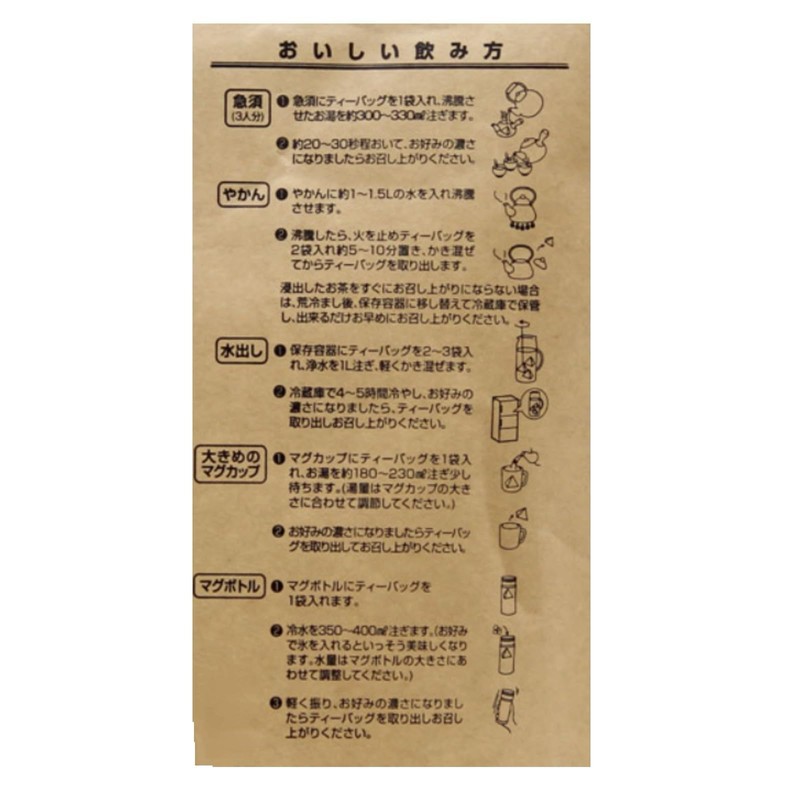 おいしい飲み方
急須
(3人分)
❶ 急須にティーバッグを1袋入れ、沸騰さ
せたお湯を約300〜330㎖注ぎます。
❷ 約20〜30秒程おいて、お好みの濃さ
になりましたらお召し上がりください。
やかん
❶ やかんに約1〜1.5Lの水を入れ沸騰
させます。
❷ 沸騰したら、火を止めティーバッグを
2袋入れ約5〜10分置き、かき混ぜ
てからティーバッグを取り出します。
浸出したお茶をすぐにお召し上がりにならない場合
は、荒冷まし後、保存容器に移し替えて冷蔵庫で保管
し、出来るだけお早めにお召し上がりください。
水出し
❶ 保存容器にティーバッグを2〜3袋入
れ、浄水を1L注ぎ、軽くかき混ぜます。
❷ 冷蔵庫で4〜5時間冷やし、お好みの
濃さになりましたら、ティーバッグを
取り出しお召し上がりください。
大きめの
マグカップ
❶ マグカップにティーバッグを1袋入
れ、お湯を約180〜230㎖注ぎ少し
待ちます。(湯量はマグカップの大き
さに合わせて調節してください。)
❷ お好みの濃さになりましたらティーバッ
グを取り出してお召し上がりください。
マグボトル
❶ マグボトルにティーバッグを
1袋入れます。
❷ 冷水を350〜400㎖注ぎます。(お好み
で氷を入れるといっそう美味しくなり
ます。水量はマグボトルの大きさにあ
わせて調整してください。)
❸ 軽く振り、お好みの濃さになりまし
たらティーバッグを取り出しお召し
上がりください。